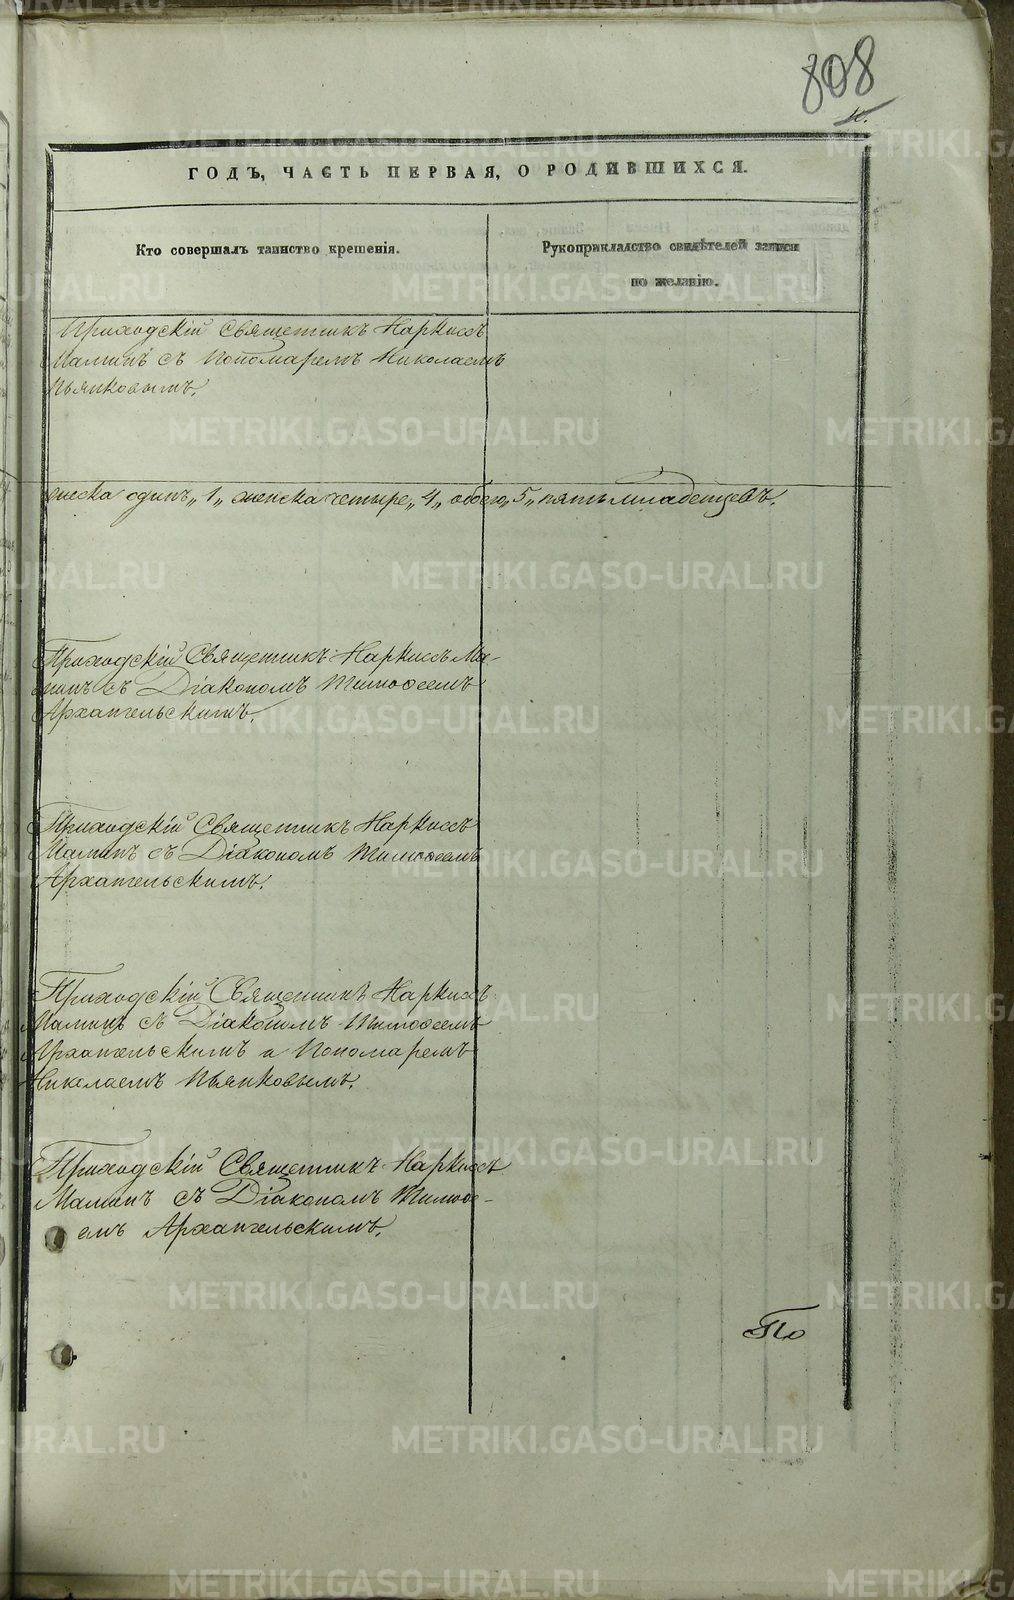 808
ГОДЪ, ЧАСТЬ ПЕРВАЯ, О РОДИВШИХСЯ.
Кто совершалъ таинство крещенія.
Рукоприкладство свидѣтелей записи
по желанію.
Приходскій Священникъ Наркисъ
Маминъ съ Пономаремъ Николаемъ
Пьянковымъ.
жеска одинъ „1„ женска четыре „4„ обоего „5„ пять младенцевъ.
Приходскій Священникъ Наркисъ Ма-
минъ съ Діакономъ Тимоѳеемъ
Архангельскимъ.
Приходскій Священникъ Наркисъ
Маминъ съ Діакономъ Тимоѳеемъ
Архангельскимъ.
Приходскій Священникъ Наркисъ
Маминъ съ Діакономъ Тимоѳеемъ
Архангельскимъ и Пономаремъ
Николаемъ Пьянковымъ.
Приходскій Священникъ Наркисъ
Маминъ съ Діакономъ Тимоѳе-
емъ Архангельскимъ.
По
METRIKI.GASO-URAL.RU